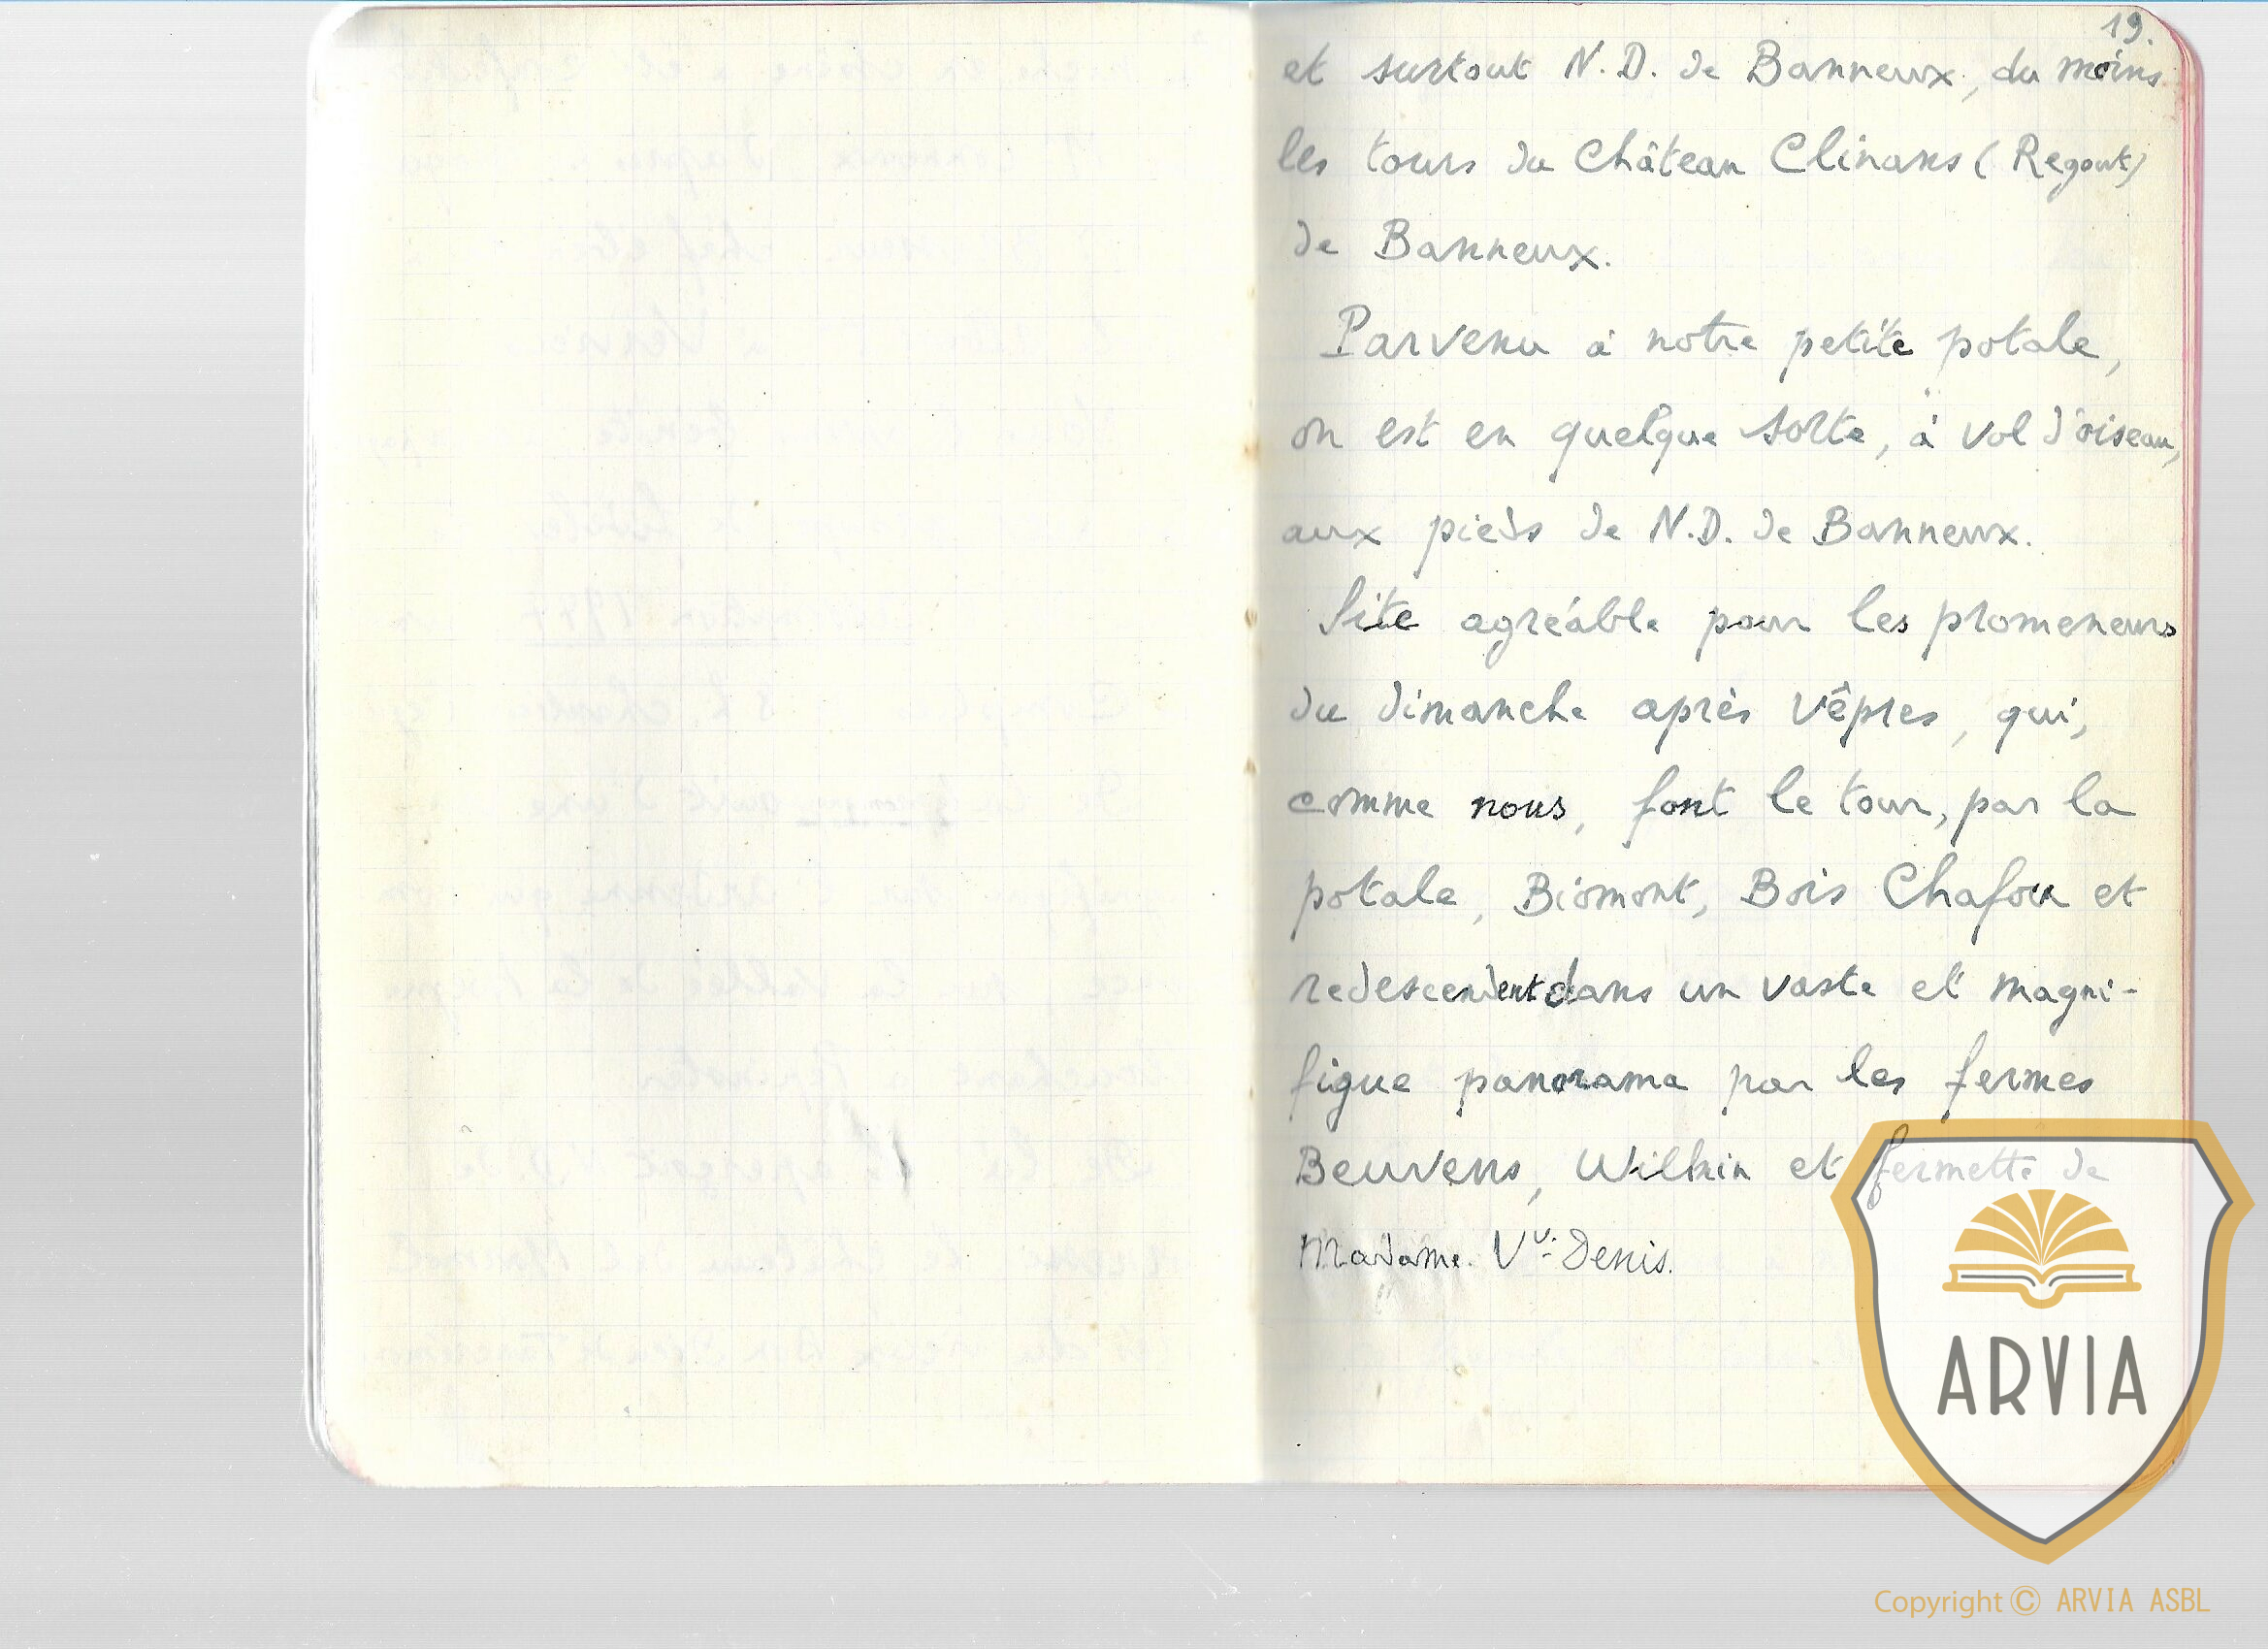 19.
et surtout N.D. de Banneux, du moins
les tours du Château Clinans (Regout)
de Banneux.
Parvenu à notre petite potale,
on est en quelque sorte, à vol d'oiseau,
aux pieds de N.D. de Banneux.
Site agréable pour les promeneurs
du dimanche après Vêpres, qui,
comme nous, font le tour, par la
potale, Biomont, Bois Chafou et
redescendent dans un vaste et magni-
fique panorama par les fermes
Beuvens, Wilkin et fermette de
Madame Vve Denis.
ARVIA
Copyright © ARVIA ASBL